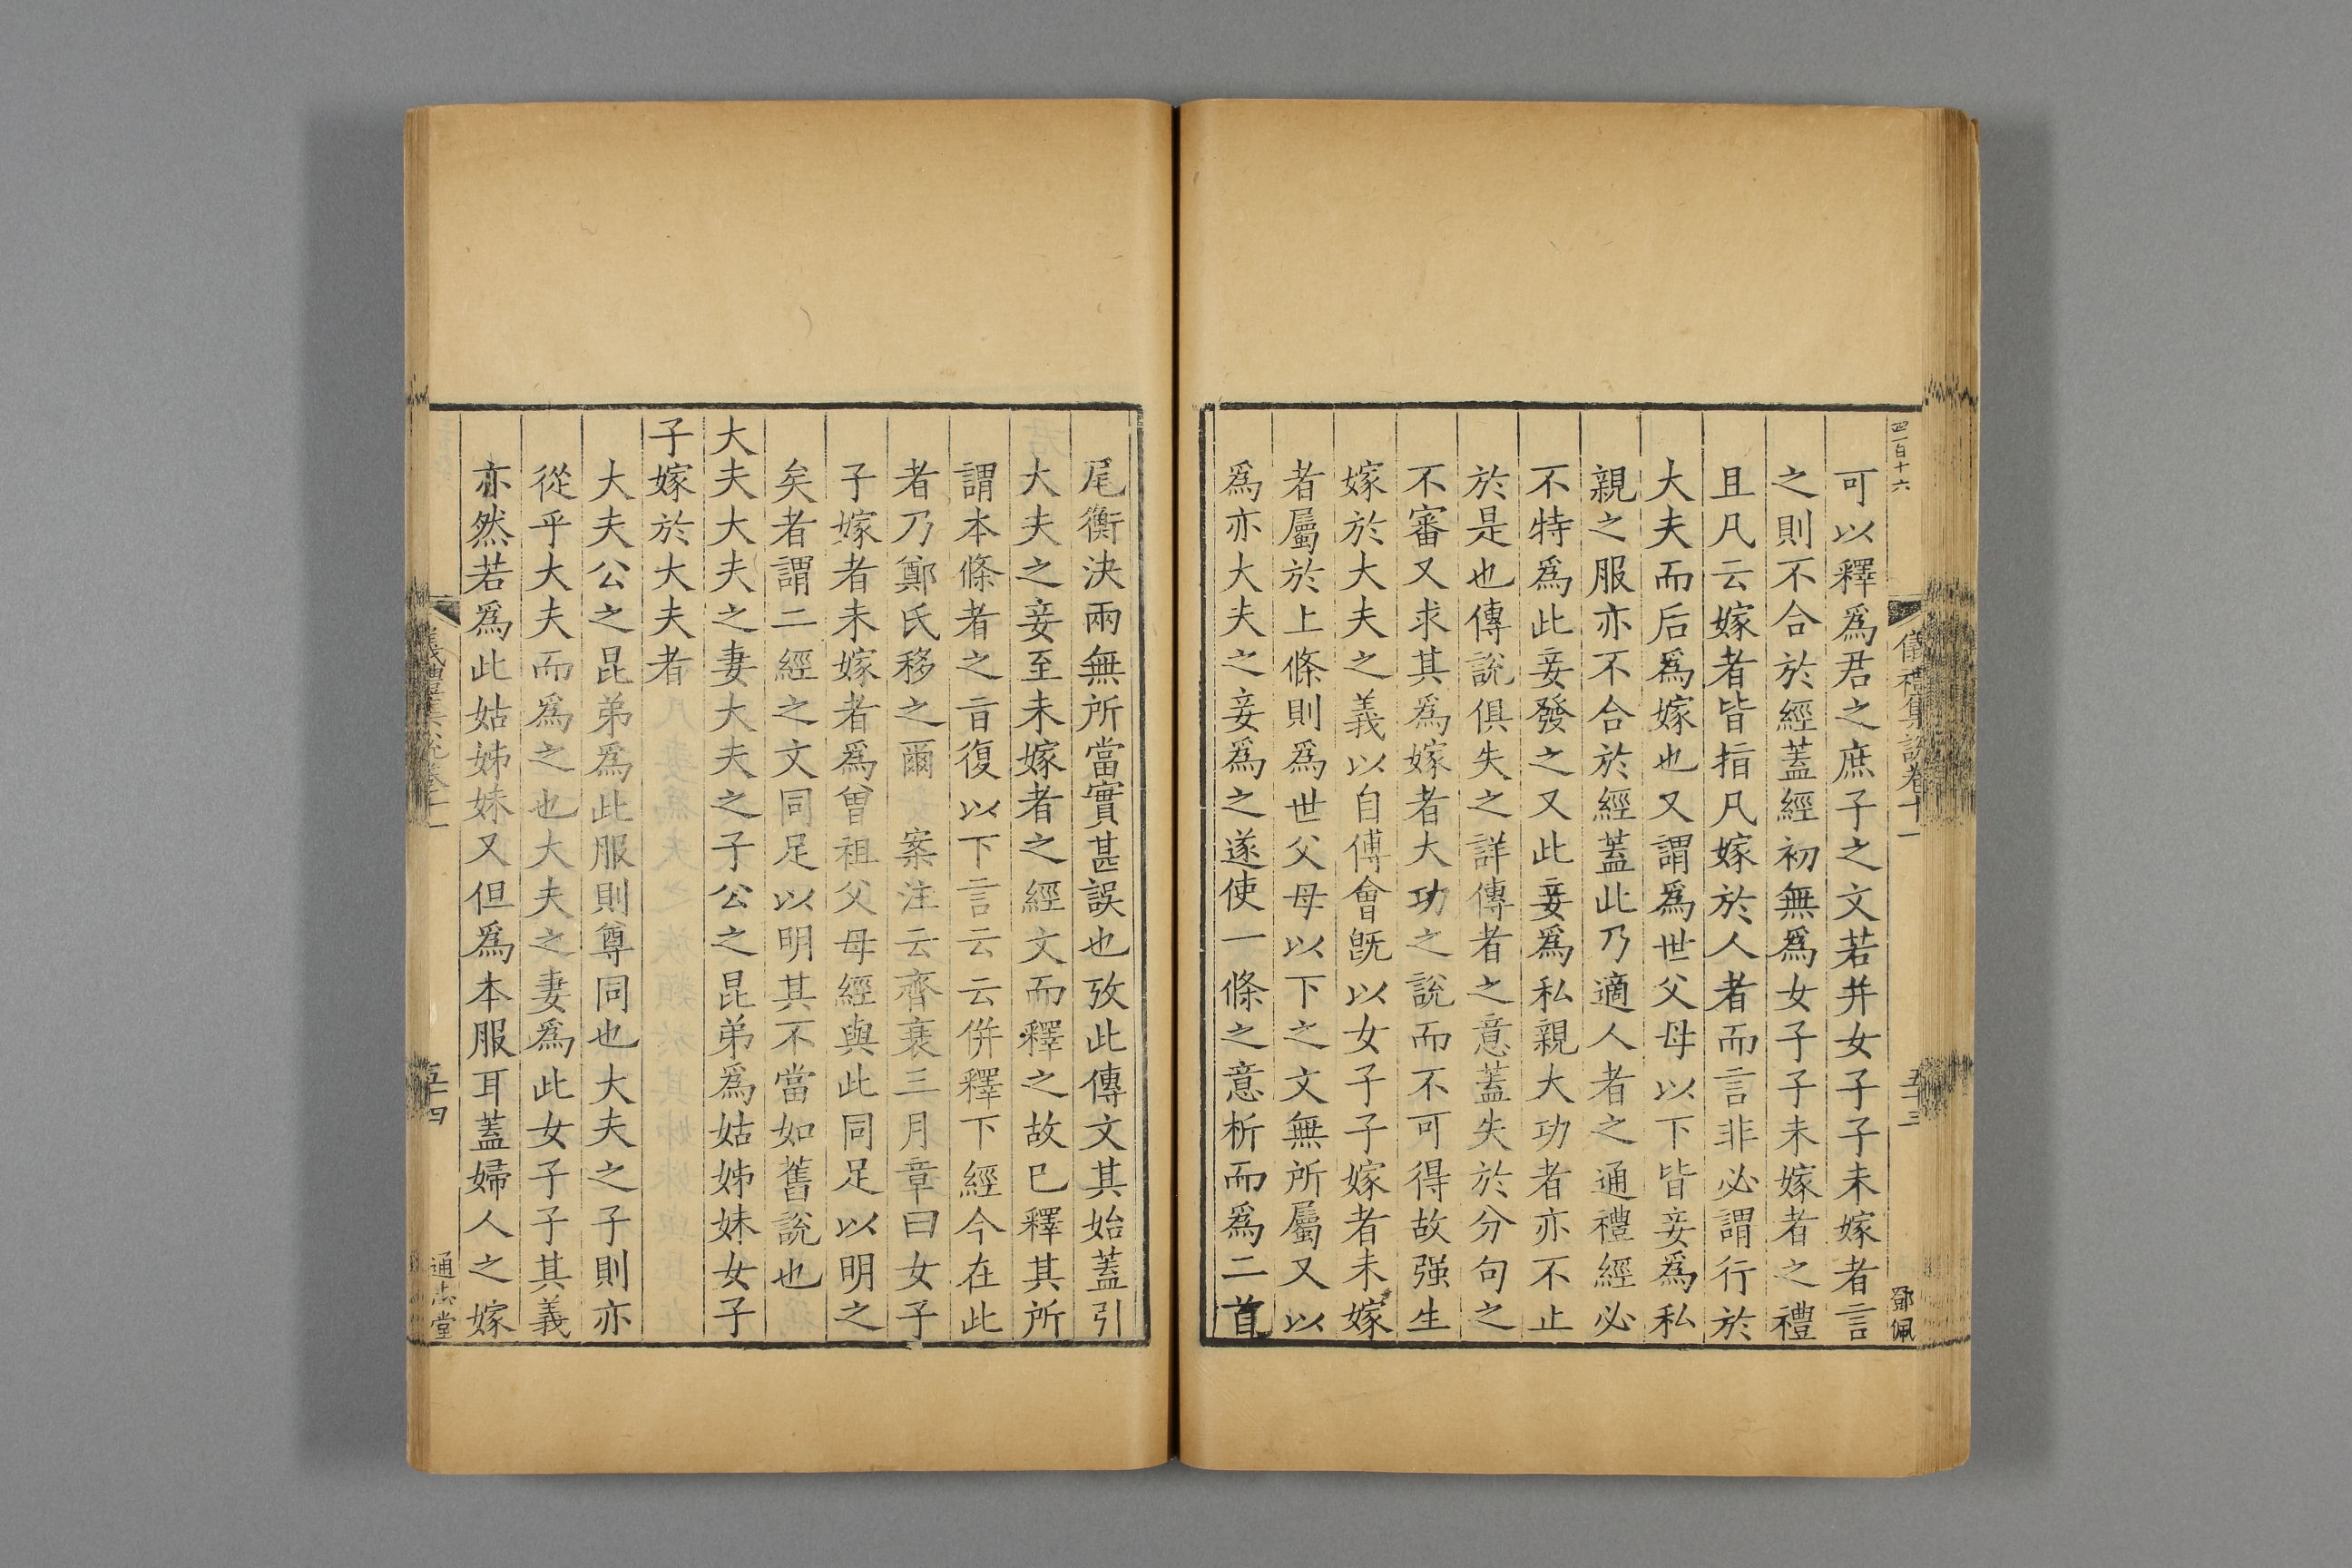 四百十六
儀禮集說卷十一
五十三
鄧佩
可以釋爲君之庶子之文若并女子子未嫁者言
之則不合於經蓋經初無爲女子子未嫁者之禮
且凡云嫁者皆指凡嫁於人者而言非必謂行於
大夫而后爲嫁也又謂爲世父母以下皆妾爲私
親之服亦不合於經蓋此乃適人者之通禮經必
不特爲此妾發之又此妾爲私親大功者亦不止
於是也傳說俱失之詳傳者之意蓋失於分句之
不審又求其爲嫁者大功之說而不可得故强生
嫁於大夫之義以自傅會旣以女子子嫁者未嫁
者屬於上條則爲世父母以下之文無所屬又以
爲亦大夫之妾爲之遂使一條之意析而爲二首
尾衡決兩無所當實甚誤也攷此傳文其始蓋引
大夫之妾至未嫁者之經文而釋之故已釋其所
謂本條者之旨復以下言云云併釋下經今在此
者乃鄭氏移之爾案注云齊衰三月章曰女子
子嫁者未嫁者爲曾祖父母經與此同足以明之
矣者謂二經之文同足以明其不當如舊說也
大夫大夫之妻大夫之子公之昆弟爲姑姊妹女子
子嫁於大夫者
大夫公之昆弟爲此服則尊同也大夫之子則亦
從乎大夫而爲之也大夫之妻爲此女子子其義
亦然若爲此姑姊妹又但爲本服耳蓋婦人之嫁
五十四
通志堂